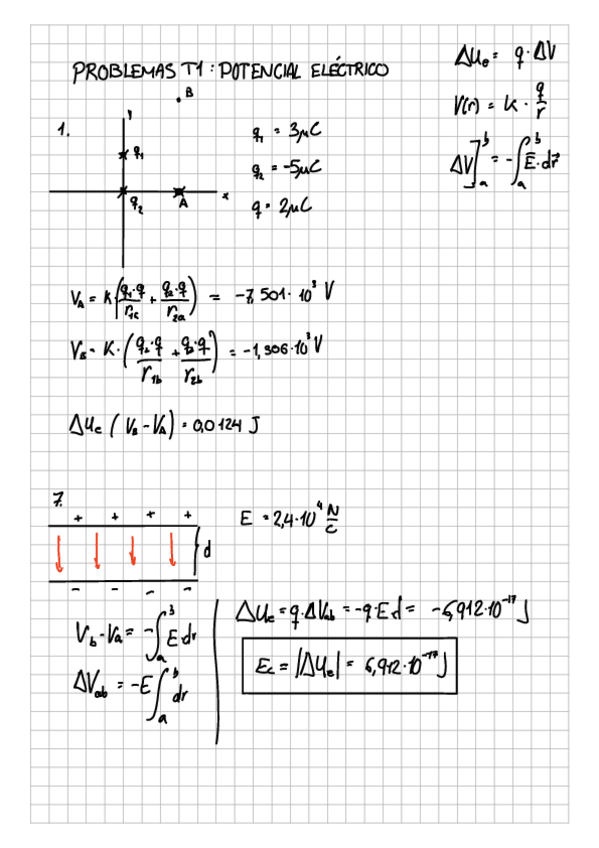 PROBLEMAS T1: POTENCIAL ELÉCTRICO
ΔUe = q·ΔV
V(r) = K · q/r
ΔV]ₐᵇ = -∫ₐᵇ E·dr
1.
B
y
q1
q2
A
x
q1 = 3μC
q2 = -5μC
q = 2μC
VA = K(q1·q/r1a + q2·q/r2a) = -7,501·10³ V
VB = K·(q1·q/r1b + q2·q/r2b) = -1,306·10³ V
ΔUe (VB - VA) = 0,0124 J
7.
+ + + +
d
- - - -
E = 2,4·10⁴ N/C
Vb - Va = -∫ₐᵇ E·dr
ΔVab = -E∫ₐᵇ dr
ΔUe = q·ΔVab = -q·E·d = -6,912·10⁻¹⁷ J
Ec = |ΔUe| = 6,912·10⁻¹⁷ J